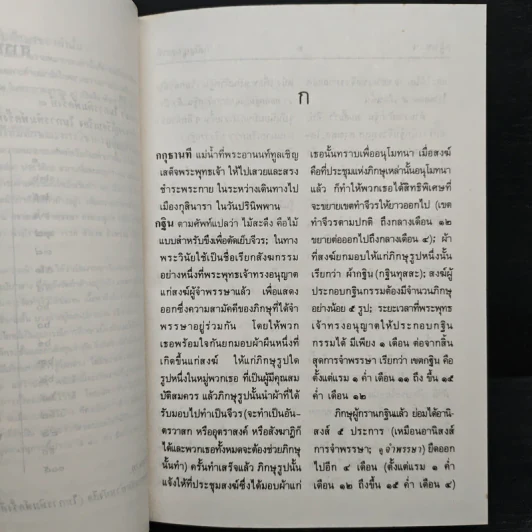 ก
กกุธานที แม่น้ำที่พระอานนท์ทูลเชิญ
เสด็จพระพุทธเจ้า ให้ไปเสวยและสรง
ชำระพระกาย ในระหว่างเดินทางไป
เมืองกุสินารา ในวันปรินิพพาน
กฐิน ตามศัพท์แปลว่า ไม้สะดึง คือไม้
แบบสำหรับขึงเพื่อตัดเย็บจีวร; ในทาง
พระวินัยใช้เป็นชื่อเรียกสังฆกรรม
อย่างหนึ่งที่พระพุทธเจ้าทรงอนุญาต
แก่สงฆ์ผู้จำพรรษาแล้ว เพื่อแสดง
ออกซึ่งความสามัคคีของภิกษุที่ได้จำ
พรรษาอยู่ร่วมกัน โดยให้พวก
เธอพร้อมใจกันยกมอบผ้าผืนหนึ่งที่
เกิดขึ้นแก่สงฆ์ ให้แก่ภิกษุรูปใด
รูปหนึ่งในหมู่พวกเธอ ที่เป็นผู้มีคุณสม
บัติสมควร แล้วภิกษุรูปนั้นนำผ้าที่ได้
รับมอบไปทำเป็นจีวร (จะทำเป็นอัน-
ตรวาสก หรืออุตราสงค์ หรือสังฆาฏิก็
ได้และพวกเธอทั้งหมดจะต้องช่วยภิกษุ
นั้นทำ) ครั้นทำเสร็จแล้ว ภิกษุรูปนั้น
แจ้งให้ที่ประชุมสงฆ์ซึ่งได้มอบผ้าแก่
เธอนั้นทราบเพื่ออนุโมทนา เมื่อสงฆ์
คือที่ประชุมแห่งภิกษุเหล่านั้นอนุโมทนา
แล้ว ก็ทำให้พวกเธอได้สิทธิพิเศษที่
จะขยายเขตทำจีวรให้ยาวออกไป (เขต
ทำจีวรตามปกติ ถึงกลางเดือน ๑๒
ขยายต่อออกไปถึงกลางเดือน ๔); ผ้า
ที่สงฆ์ยกมอบให้แก่ภิกษุรูปหนึ่งนั้น
เรียกว่า ผ้ากฐิน (กฐินทุสสะ); สงฆ์ผู้
ประกอบกฐินกรรมต้องมีจำนวนภิกษุ
อย่างน้อย ๕ รูป; ระยะเวลาที่พระพุทธ
เจ้าทรงอนุญาตให้ประกอบกฐิน
กรรมได้ มีเพียง ๑ เดือน ต่อจากสิ้น
สุดการจำพรรษา เรียกว่า เขตกฐิน คือ
ตั้งแต่แรม ๑ ค่ำ เดือน ๑๑ ถึง ขึ้น ๑๕
ค่ำ เดือน ๑๒
ภิกษุผู้กรานกฐินแล้ว ย่อมได้อานิ
สงส์ ๕ ประการ (เหมือนอานิสงส์
การจำพรรษา; ดู จำพรรษา) ยืดออก
ไปอีก ๔ เดือน (ตั้งแต่แรม ๑ ค่ำ
เดือน ๑๒ ถึงขึ้น ๑๕ ค่ำ เดือน ๔)